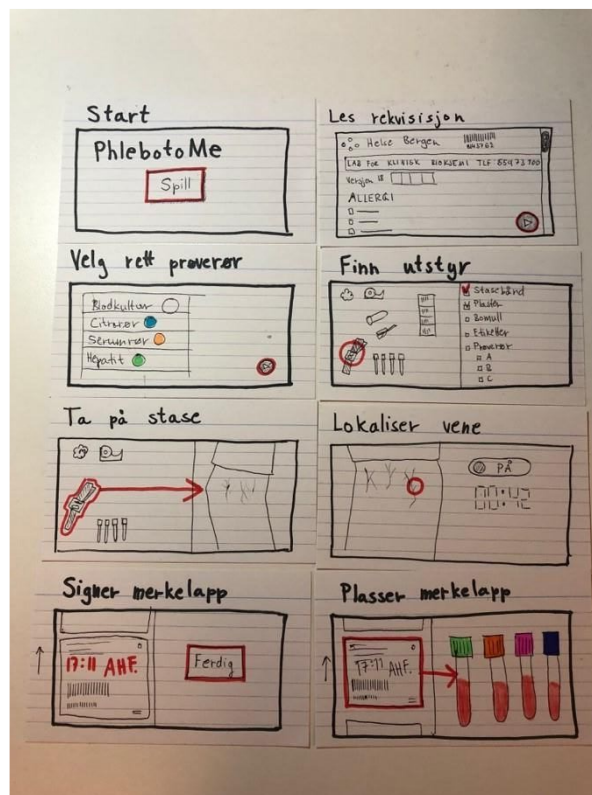 Start
PhlebotoMe
Spill
Les rekvisisjon
Helse Bergen
LAB FOR KLINISK BIOKJEMI TLF: 55973100
Versjon
ALLERGI
Velg rett prøverør
Blodkultur
Citratrør
Serumrør
Hepatit
Finn utstyr
Stasebånd
Plaster
Bomull
Etiketter
Prøverør
A
B
C
Ta på stase
Lokaliser vene
PÅ
00:42
Signer merkelapp
17:11 AHF.
Ferdig
Plasser merkelapp
17:11 AHF.